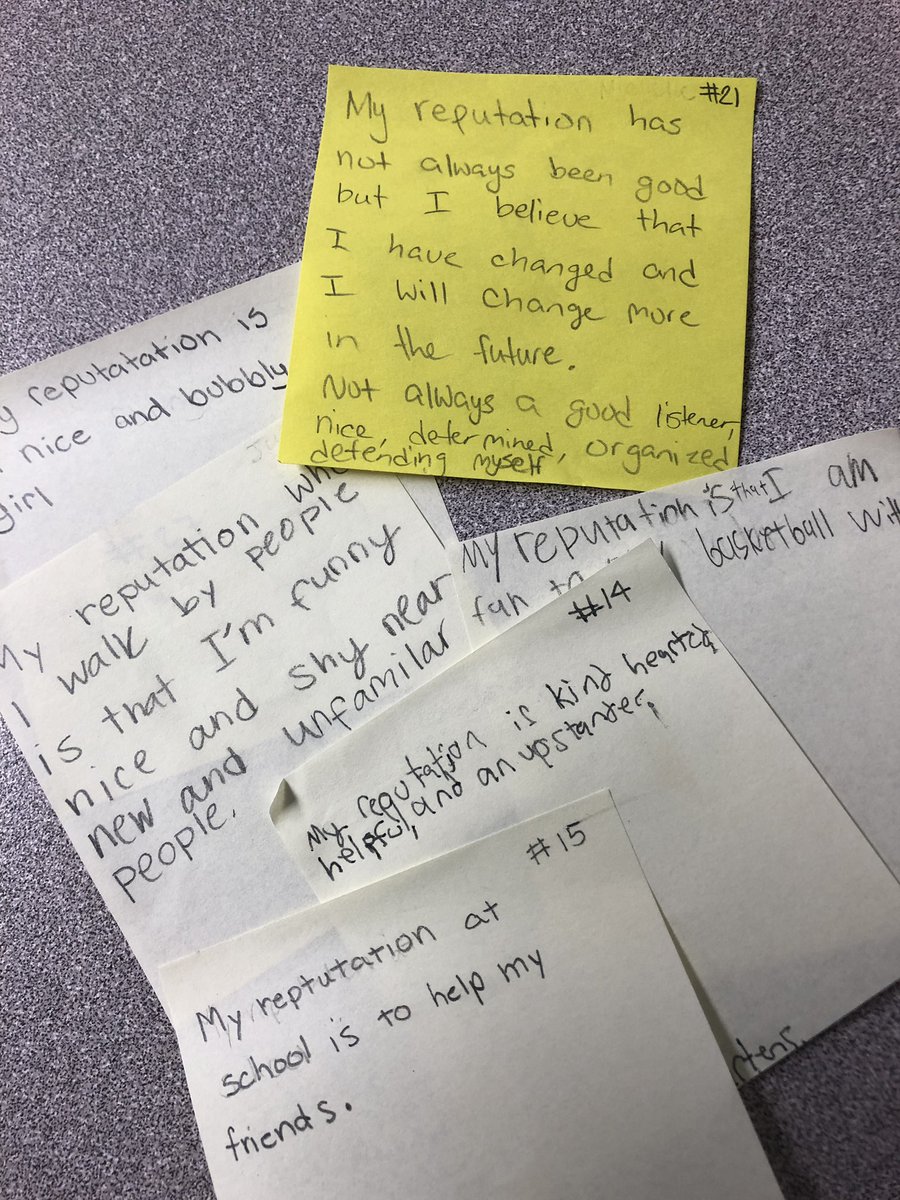 #21
My reputation has
not always been good
but I believe that
I have changed and
I will change more
in the future.
Not always a good listener,
nice, determined, organized
defending myself
y reputatation is
nice and bubbly
girl
My reputation
I walk by people
is that I'm funny
nice and shy near
new and unfamilar
people.
My reputation is that I am
fun to basketball with
#14
My reputation is kind hearted,
helpful, and an upstander.
#15
My reptutation at
school is to help my
friends.